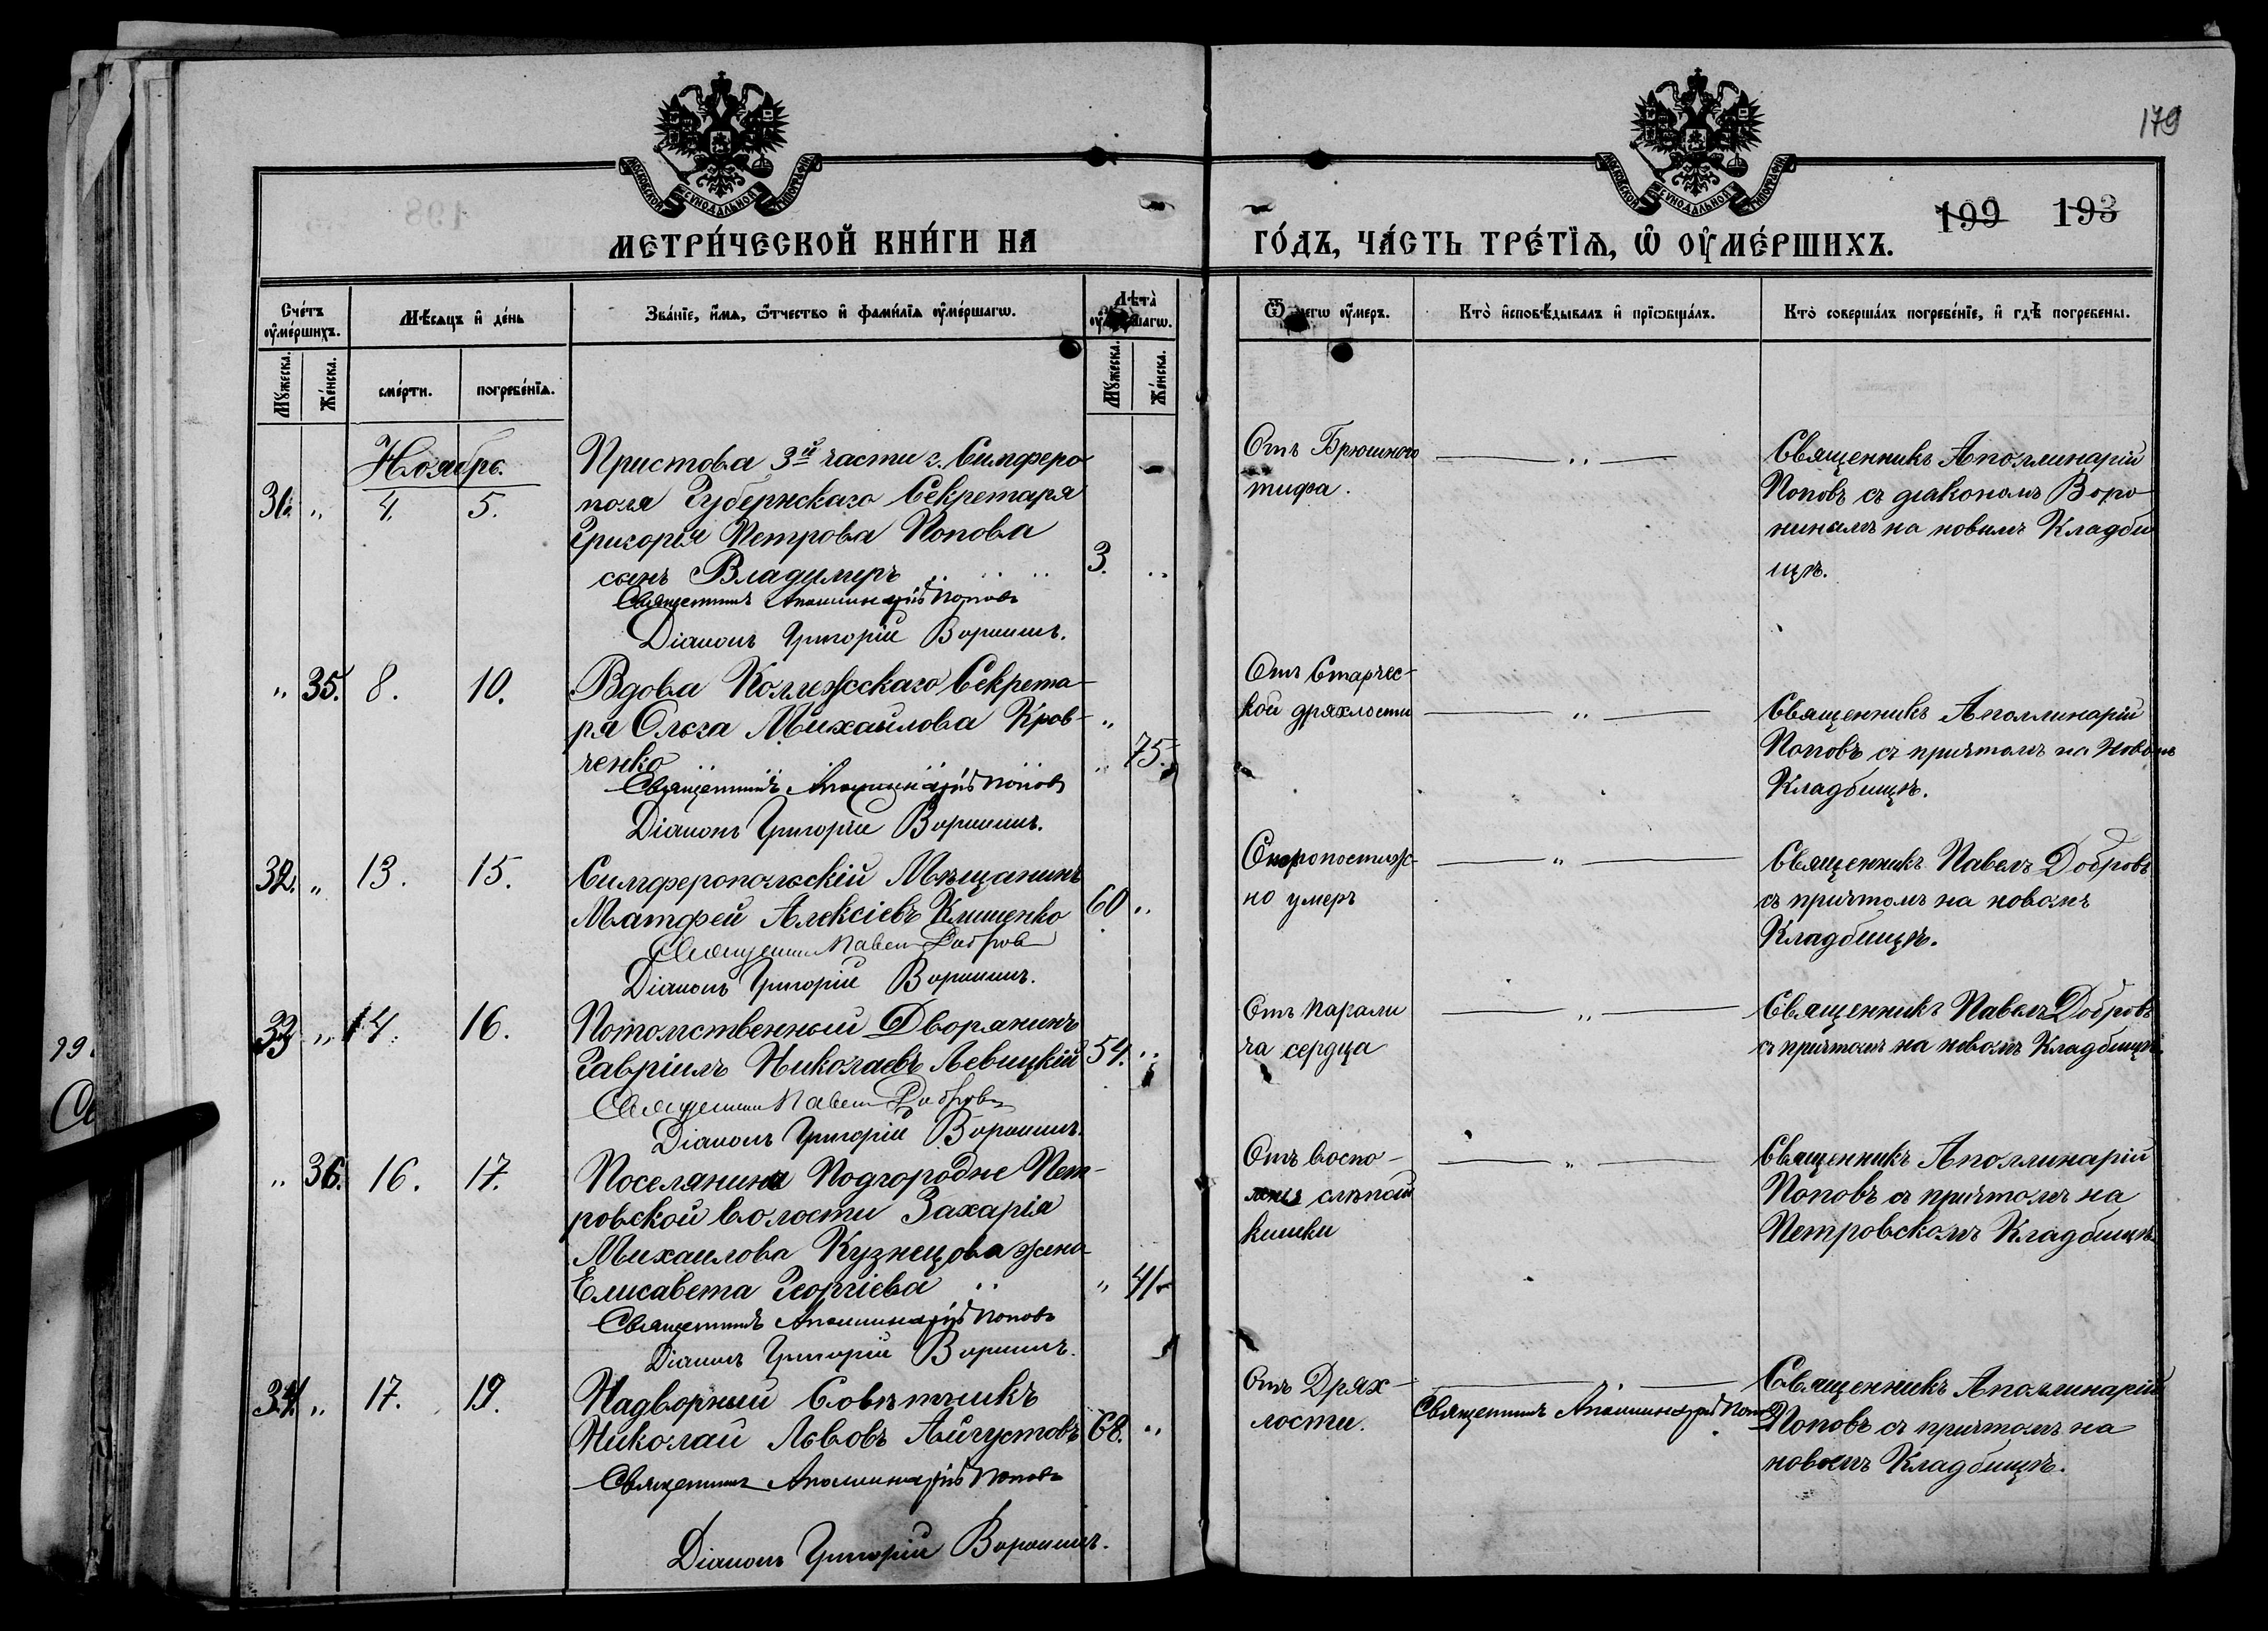 179
199 193
МОСКОВСКОЙ СѴНОДАЛЬНОЙ ТИПОГРАФІИ
МОСКОВСКОЙ СѴНОДАЛЬНОЙ ТИПОГРАФІИ
МЕТРИ́ЧЕСКОЙ КНИ́ГИ НА
ГО́ДЪ, ЧА́СТЬ ТРЕ́ТЇѦ, Ѿ ОУ҆МЕ́РШИХЪ.
Сче́тъ оу҆ме́ршихъ.
Мѣ́сѧцъ и҆ де́нь
Зва́нїе, и҆́мѧ, ѻ҆́тчество и҆ фами́лїѧ оу҆ме́ршагѡ.
Лѣта̀
Ѿ чегѡ оу҆́меръ.
Кто̀ и҆сповѣ́дывалъ и҆ прїѡбща́лъ.
Кто̀ соверша́лъ погребе́нїе, и҆ гдѣ̀ погребены.
Мꙋ́жеска.
Же́нска.
сме́рти.
погребе́нїѧ.
Мꙋ́жеска.
Же́нска.
Ноябрь.
31. „ 4. 5.
Пристова 3й части г. Симферо
поля Губернскаго Секретаря
Григорія Петрова Попова
сынъ Владимиръ 3. „
Священникъ Аполлинарій Поповъ
Діаконъ Григорій Воронинъ.
Отъ Брюшного
тифа.
— „ —
Священникъ Аполлинарій
Поповъ съ діакономъ Воро
нинымъ на новомъ Кладби
щѣ.
„ 35. 8. 10.
Вдова Коллежскаго Секрета-
ря Ольга Михайлова Кров-
ченко „ 75.
Священникъ Аполлинарій Поповъ
Діаконъ Григорій Воронинъ.
Отъ Старчес-
кой дряхлости
— „ —
Священникъ Аполлинарій
Поповъ съ причтомъ на Новомъ
Кладбищѣ.
32. „ 13. 15.
Симферопольскій Мѣщанинъ
Матфей Алексіевъ Клищенко 60 „
Священникъ Павелъ Добровъ
Діаконъ Григорій Воронинъ.
Скоропостиж-
но умеръ
— „ —
Священникъ Павелъ Добровъ
съ причтомъ на новомъ
Кладбищѣ.
33 „ 14. 16.
Потомственный Дворянинъ
Гавріилъ Николаевъ Левицкій 54. „
Священникъ Павелъ Добровъ
Діаконъ Григорій Воронинъ.
Отъ парали
ча сердца
— „ —
Священникъ Павелъ Добровъ
съ причтомъ на новомъ Кладбищѣ.
„ 36. 16. 17.
Поселянина Подгородне Пет-
ровской волости Захарія
Михаилова Кузнецова жена
Елисавета Георгіева „ 41
Священникъ Аполлинарій Поповъ
Діаконъ Григорій Воронинъ.
Отъ воспа-
слѣпой
кишки
— „ —
Священникъ Аполлинарій
Поповъ съ причтомъ на
Петровскомъ Кладбищѣ.
34. „ 17. 19.
Надворный Совѣтникъ
Николай Львовъ Айгустовъ 68. „
Священникъ Аполлинарій Поповъ
Діаконъ Григорій Воронинъ.
Отъ Дрях-
лости.
Священникъ Аполлинарій Поповъ
Священникъ Аполлинарій
Поповъ съ причтомъ на
новомъ Кладбищѣ.